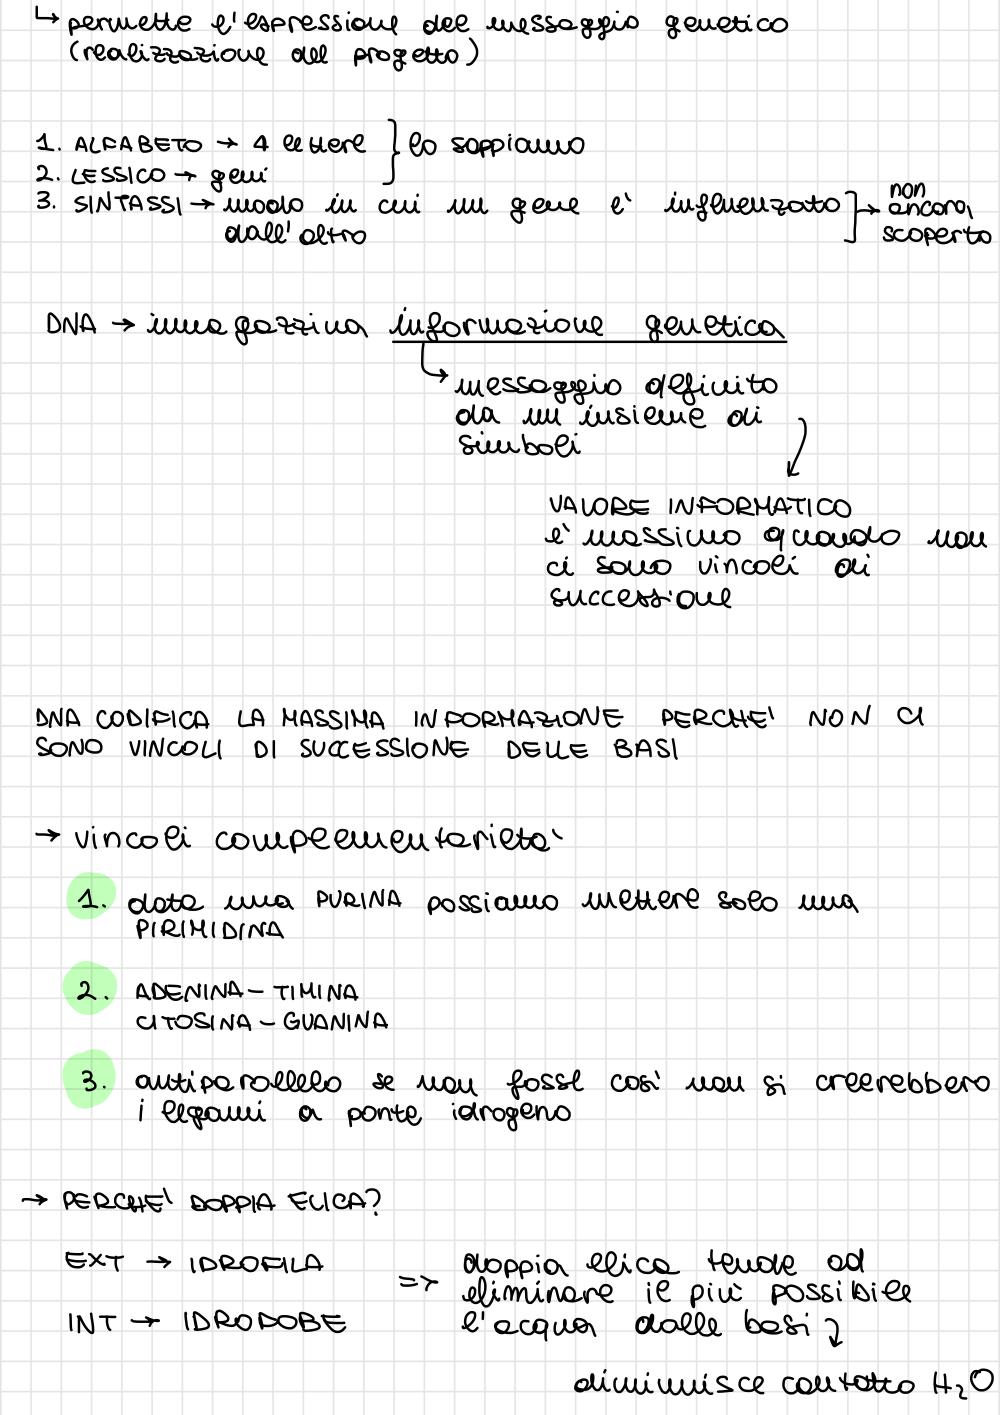 ↳ permette l'espressione del messaggio genetico
(realizzazione del progetto)
1. ALFABETO → 4 lettere } lo sappiamo
2. LESSICO → geni
3. SINTASSI → modo in cui un gene e' influenzato ] → non ancora, scoperto
dall'altro
DNA → immagazzina informazione genetica
↳ messaggio definito
da un insieme di
simboli
VALORE INFORMATICO
e' massimo quando non
ci sono vincoli di
successione
DNA CODIFICA LA MASSIMA INFORMAZIONE PERCHE' NON CI
SONO VINCOLI DI SUCCESSIONE DELLE BASI
→ vincoli complementarietà
1. data una PURINA possiamo mettere solo una
PIRIMIDINA
2. ADENINA - TIMINA
CITOSINA - GUANINA
3. antiparallelo se non fosse così non si creerebbero
i legami a ponte idrogeno
→ PERCHE' DOPPIA ELICA?
EXT → IDROFILA
INT → IDROFOBE
=> doppia elica tende ad
eliminare il più possibile
l'acqua dalle basi
diminuisce contatto H₂O